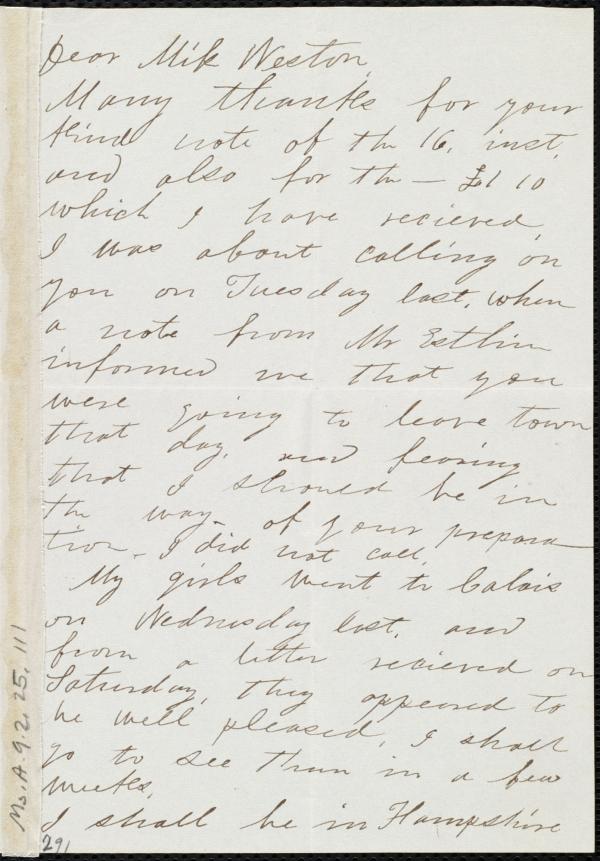 Dear Miss Weston,
Many thanks for your
kind note of the 16, inst,
and also for the — £1 10
which I have recieved,
I was about calling on
you on Tuesday last, when
a note from Mr Estlin
informed me that you
were going to leave town
that day, and fearing
that I should be in
the way of your prepara
tion, I did not call,
My girls went to Calais
on Wednesday last, and
from a letter recieved on
Saturday, they appeared to
be well pleased, I shall
go to see them in a few
weeks,
I shall be in Hampshire
Ms. A. 9. 2. 25, 111
291